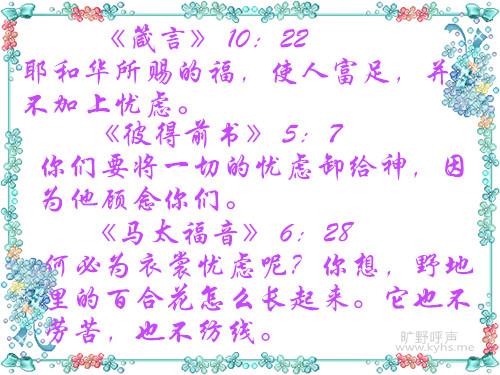 《箴言》 10：22
耶和华所赐的福，使人富足，并
不加上忧虑。
《彼得前书》 5：7
你们要将一切的忧虑卸给神，因
为他顾念你们。
《马太福音》 6：28
何必为衣裳忧虑呢？你想，野地
里的百合花怎么长起来。它也不
劳苦，也不纺线。
旷野呼声
www.kyhs.me